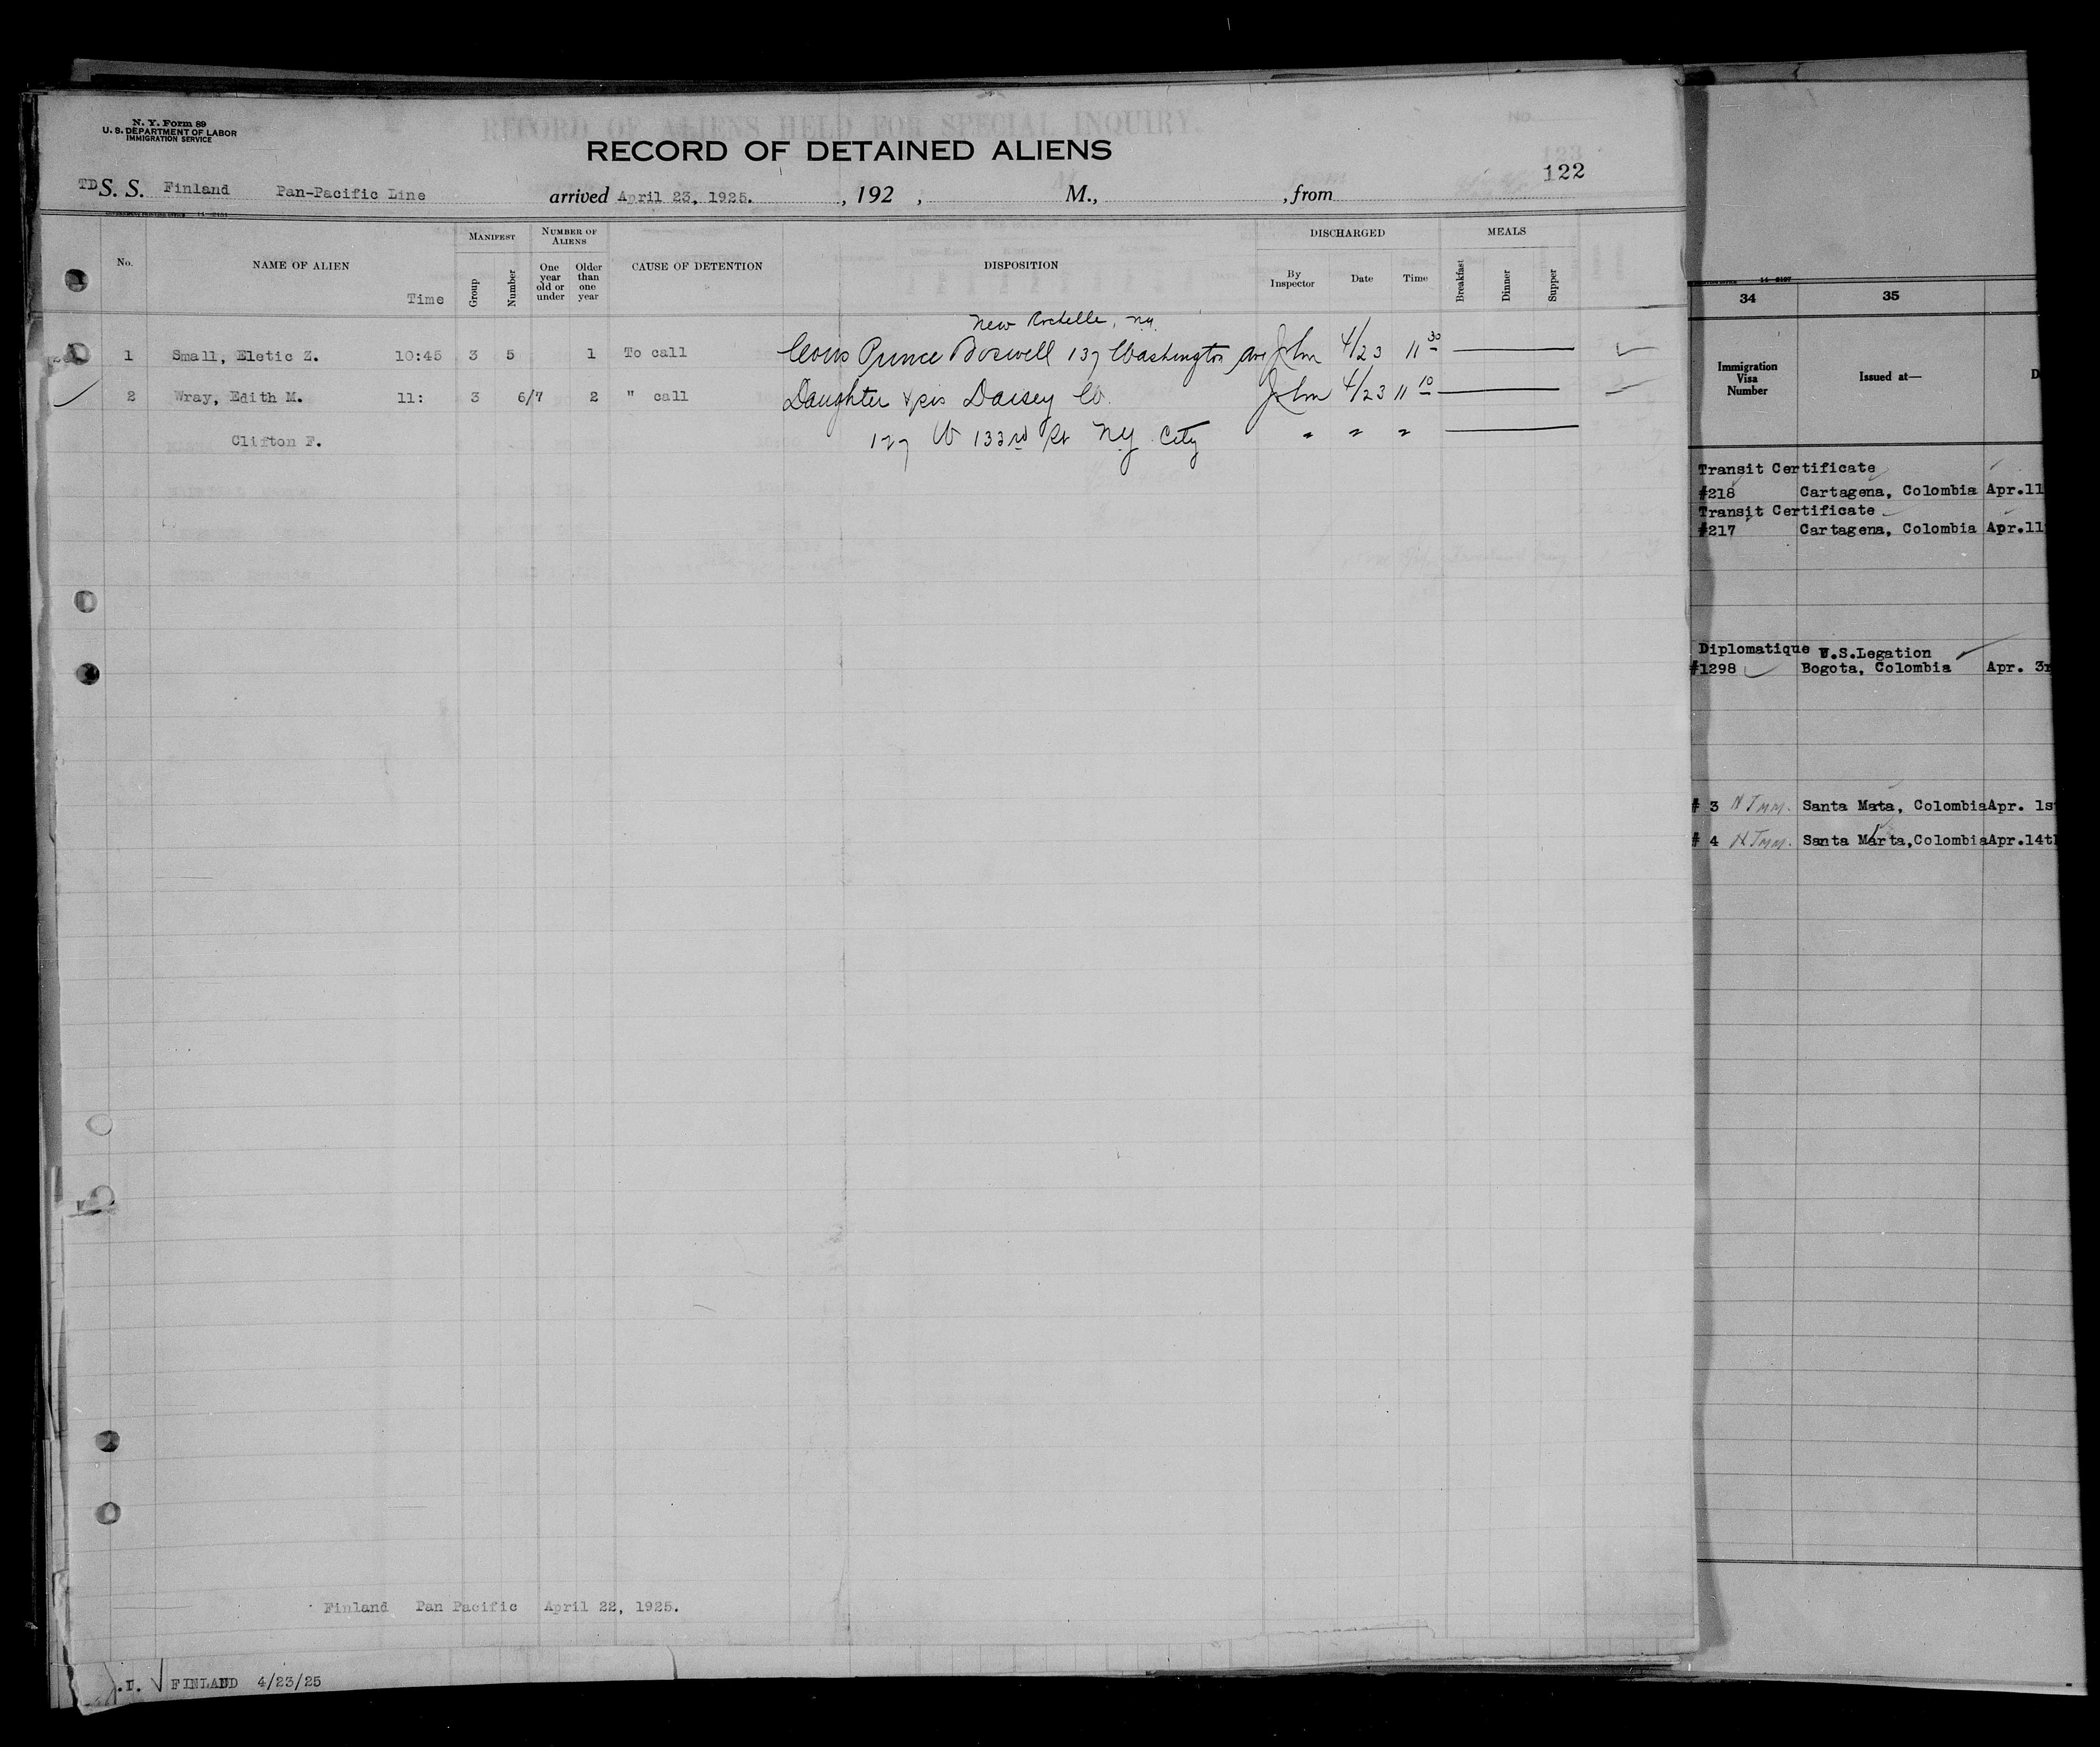 N. Y. Form 89
U. S. DEPARTMENT OF LABOR
IMMIGRATION SERVICE
RECORD OF ALIENS HELD FOR SPECIAL INQUIRY.
RECORD OF DETAINED ALIENS
122
TD S. S. Finland Pan-Pacific Line arrived April 23, 1925. , 192 , M., , from
No. NAME OF ALIEN Time MANIFEST Group Number NUMBER OF ALIENS One year old or under Older than one year CAUSE OF DETENTION DISPOSITION DISCHARGED By Inspector Date Time MEALS Breakfast Dinner Supper
New Rochelle, n.y.
1 Small, Eletic Z. 10:45 3 5 1 To call Cous Prince Boswell 137 Washington Ave John 4/23 11 30
2 Wray, Edith M. 11: 3 6/7 2 " call Daughter & sis Daisey W. John 4/23 11 10
Clifton F. 127 W 133rd St N.Y. City " " "
Finland Pan Pacific April 22, 1925.
FINLAND 4/23/25
14-2107
34 35
Immigration Visa Number Issued at— D
Transit Certificate
#218 Cartagena, Colombia Apr.11
Transit Certificate
#217 Cartagena, Colombia Apr.11
Diplomatique U.S.Legation
#1298 Bogota, Colombia Apr. 3r
# 3 Santa Mata, Colombia Apr. 1s
# 4 Santa Marta, Colombia Apr.14th